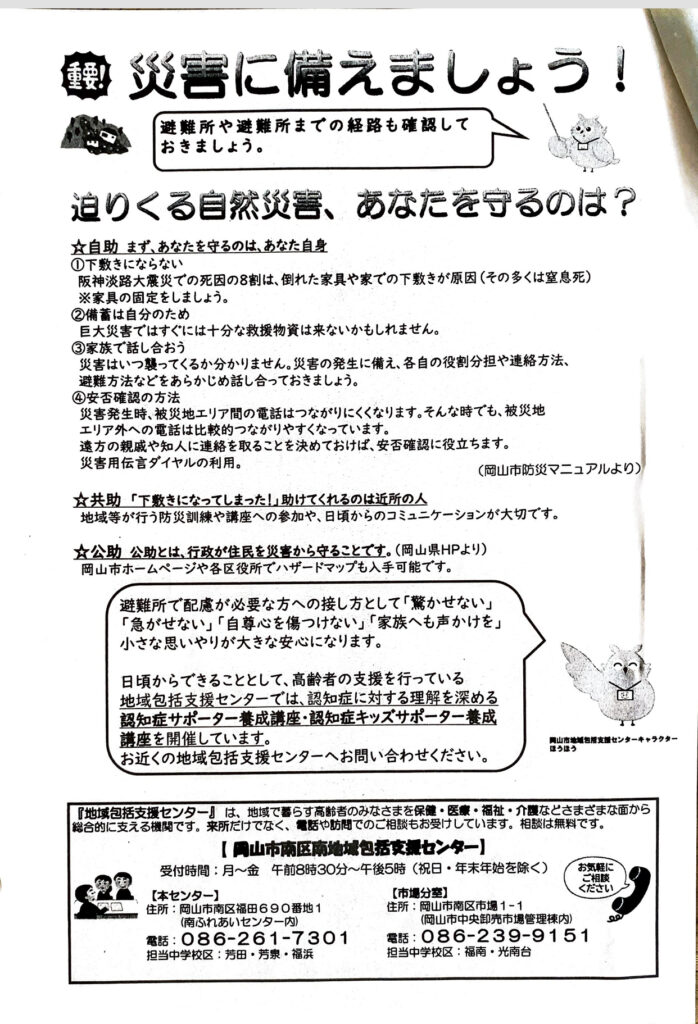 重要!
災害に備えましょう！
避難所や避難所までの経路も確認して
おきましょう。
迫りくる自然災害、あなたを守るのは？
☆自助 まず、あなたを守るのは、あなた自身
①下敷きにならない
阪神淡路大震災での死因の8割は、倒れた家具や家での下敷きが原因（その多くは窒息死）
※家具の固定をしましょう。
②備蓄は自分のため
巨大災害ではすぐには十分な救援物資は来ないかもしれません。
③家族で話し合おう
災害はいつ襲ってくるか分かりません。災害の発生に備え、各自の役割分担や連絡方法、
避難方法などをあらかじめ話し合っておきましょう。
④安否確認の方法
災害発生時、被災地エリア間の電話はつながりにくくなります。そんな時でも、被災地
エリア外への電話は比較的つながりやすくなっています。
遠方の親戚や知人に連絡を取ることを決めておけば、安否確認に役立ちます。
災害用伝言ダイヤルの利用。
（岡山市防災マニュアルより）
☆共助 「下敷きになってしまった！」助けてくれるのは近所の人
地域等が行う防災訓練や講座への参加や、日頃からのコミュニケーションが大切です。
☆公助 公助とは、行政が住民を災害から守ることです。（岡山県HPより）
岡山市ホームページや各区役所でハザードマップも入手可能です。
避難所で配慮が必要な方への接し方として「驚かせない」
「急がせない」「自尊心を傷つけない」「家族へも声かけを」
小さな思いやりが大きな安心になります。
日頃からできることとして、高齢者の支援を行っている
地域包括支援センターでは、認知症に対する理解を深める
認知症サポーター養成講座・認知症キッズサポーター養成
講座を開催しています。
お近くの地域包括支援センターへお問い合わせください。
岡山市地域包括支援センターキャラクター
ほうほう
『地域包括支援センター』 は、地域で暮らす高齢者のみなさまを保健・医療・福祉・介護などさまざまな面から
総合的に支える機関です。来所だけでなく、電話や訪問でのご相談もお受けしています。相談は無料です。
【 岡山市南区南地域包括支援センター】
受付時間：月～金 午前8時30分～午後5時（祝日・年末年始を除く）
お気軽に
ご相談
ください
【本センター】
住所：岡山市南区福田６９０番地１
（南ふれあいセンター内）
電話：０８６-２６１-７３０１
担当中学校区：芳田・芳泉・福浜
【市場分室】
住所：岡山市南区市場１-１
（岡山市中央卸売市場管理棟内）
電話：０８６-２３９-９１５１
担当中学校区：福南・光南台